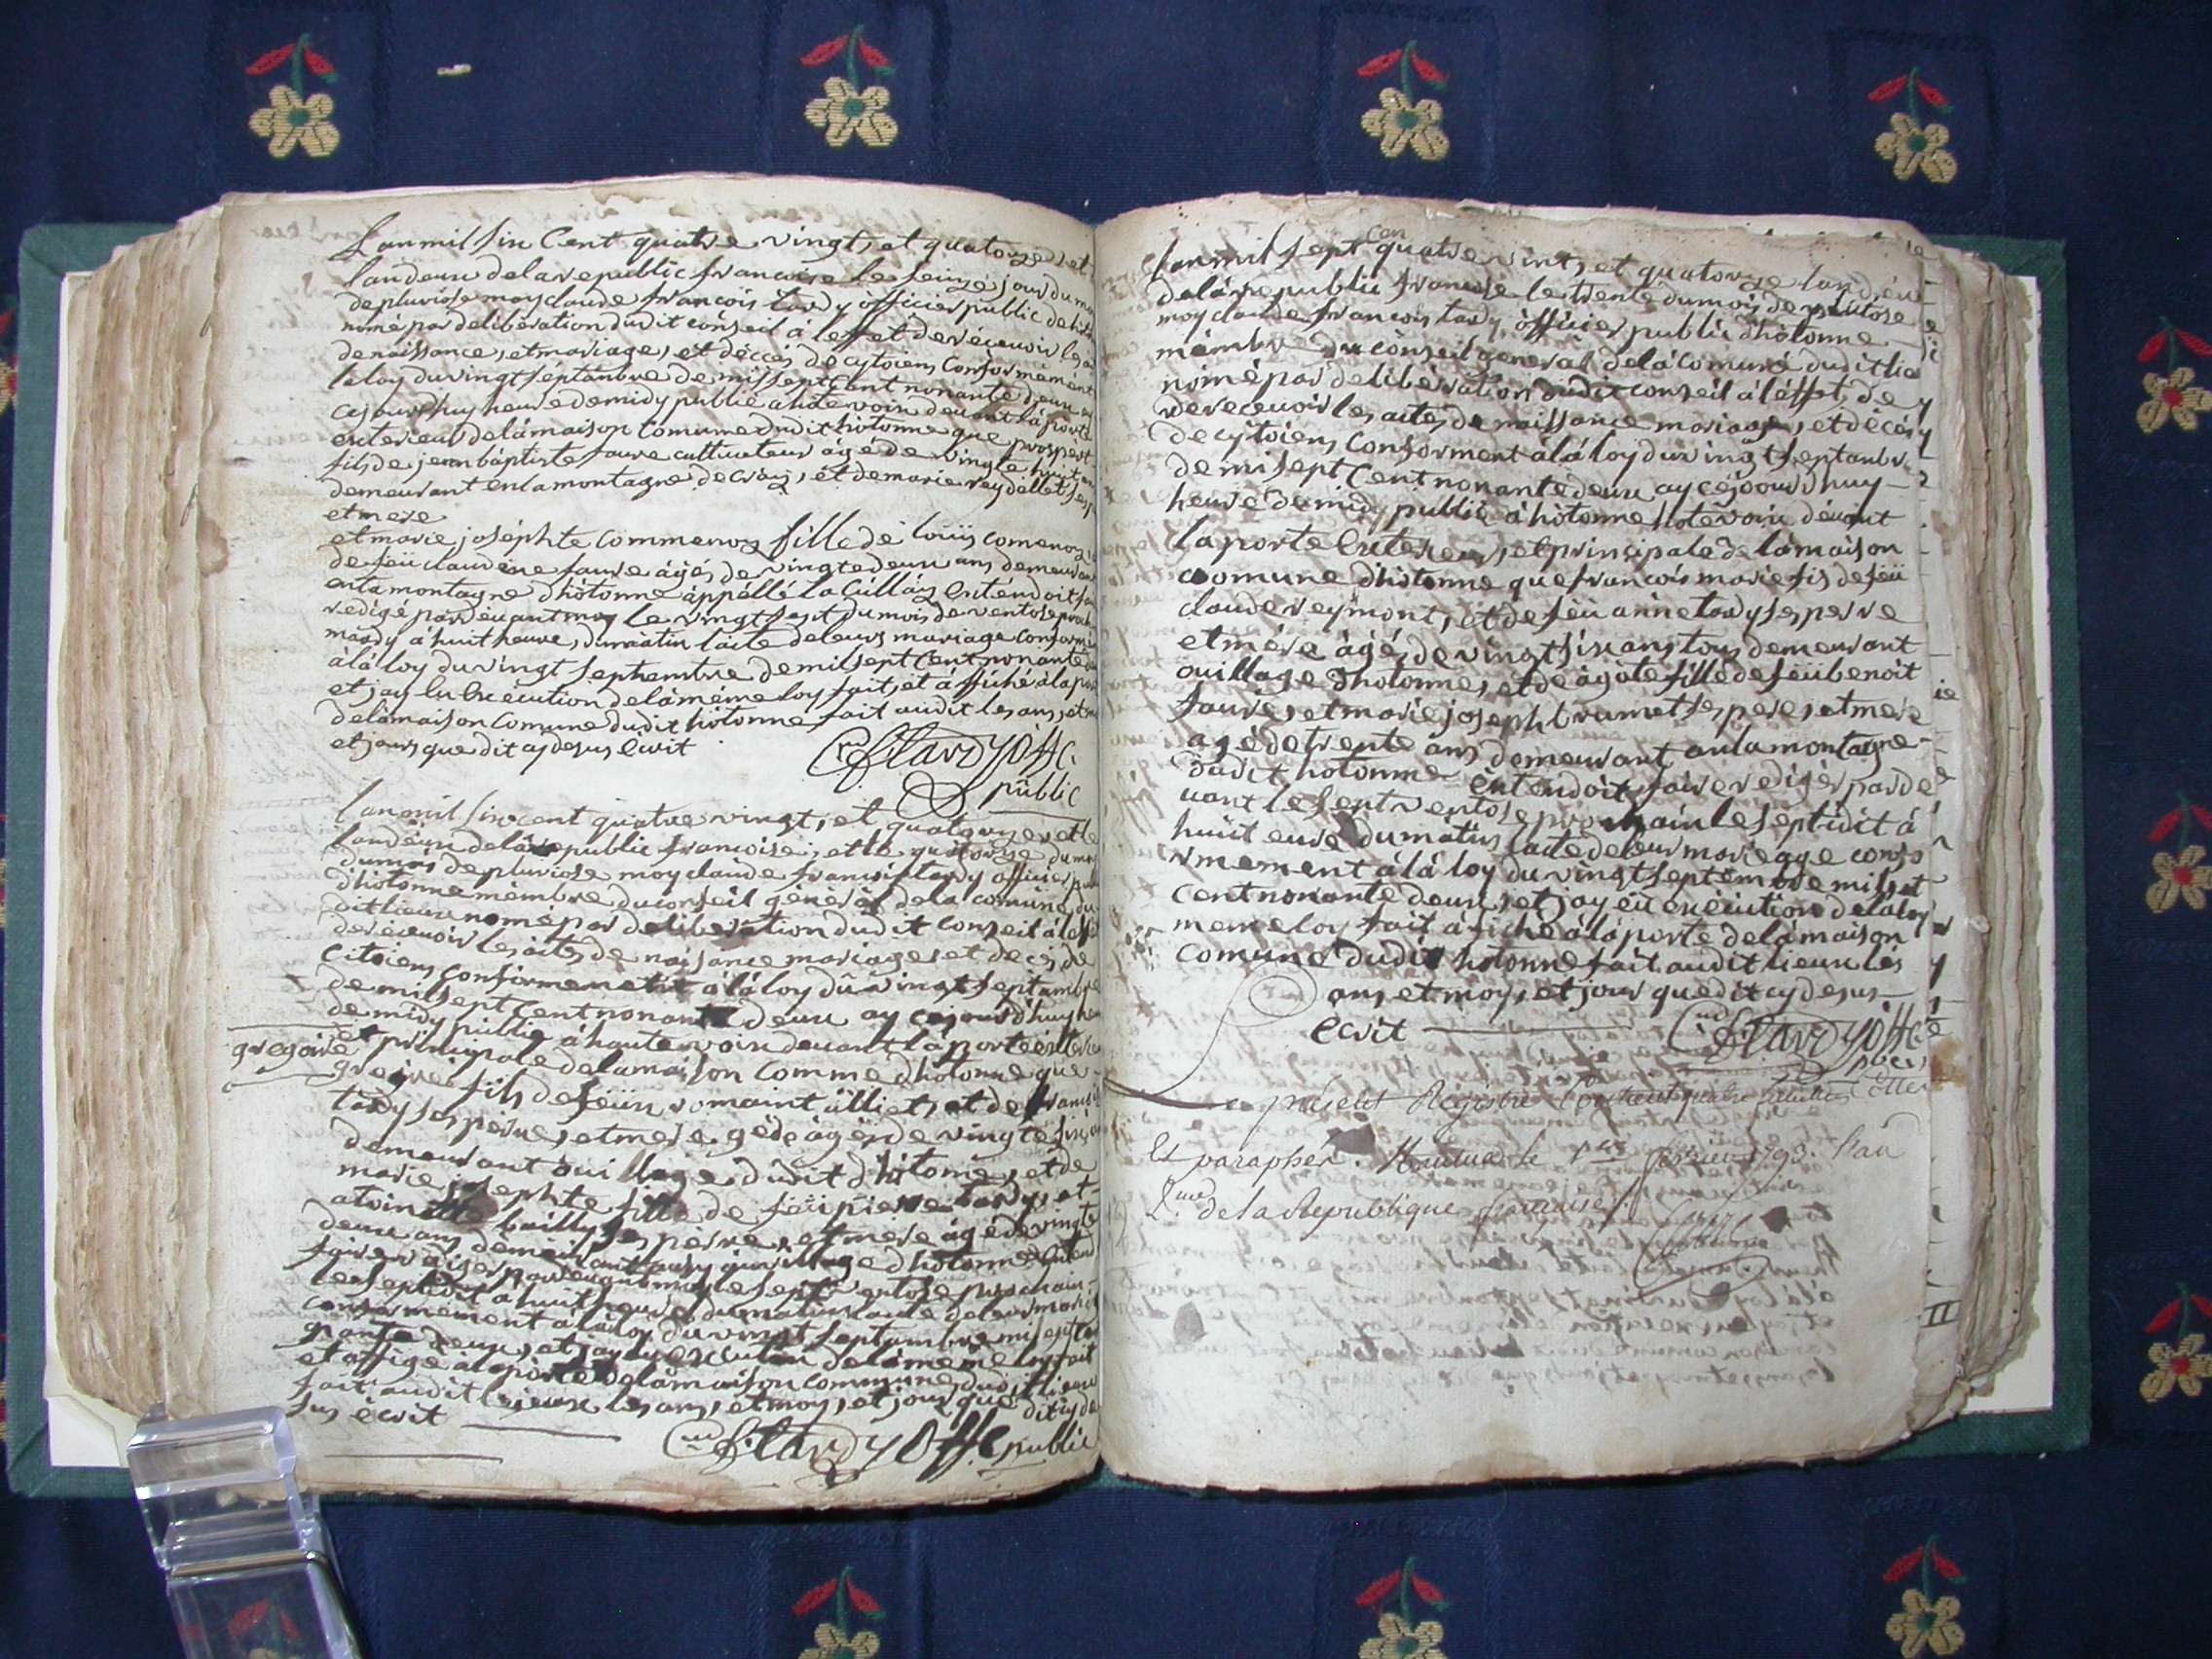 Lanmil six Cent quatre vingt, et quatorze, et
landeux delarepublic francoise le seizé jour du mo
depluviose moyclaude francois tardy officier public deho
nomé par deliberation dudit conseil à leffet derécevoir les a
denaissance, etmariage, et décces decytoiens Conformément
laloy duvingt septanbre de milseptCent nonante deux ay
cejourdhuy heure demidy publié ahote voix devant làporte
exterieur delamaison Comune dudit hotonne que prospert
fils de jean baptiste faure cultivateur àgé de vingte huit an
demeurant enlamontagne decraz, ét demarie reydellet ses p
etmere
etmarie joséphte Commenoz fille dé loüis comenoz
defeü claudine faure àgés devingtedeux ans demeurant
enlamontagne dhotonne àppéllé la Cullaz Entendoit fa
redigé pardevantmoy le vingtsept dumois deventose proch
mardy à huit heure, dumatin lacte deleurs mariage conformé
àlàloy duvingt septembre demilseptCentnonante
et jay En Execution delàméme loy fait, ét àffiché àlapor
delàmaison Comune dudit hotonne fait audit les ans, et m
et jours que dit cydesus Ecrit
Cde f. tardy Offc.
public
lanmil sixcent quatre vingt, et quatorze et le
landéux delàrepublic francoise, et le quatorze du mo
dumois depluviose moyclaude francois tardy officier pub
dhotonne mémbre duconseil génèral dela comüne du
ditlieux nomé par deliberation dudit conseil à leffet
derécevoir les àctes de naisance mariages et deces de
citoiens conformement àlàloy dû vingt septambre
demilsept Cent nonante deux ay cejourdhuy heu
demidy publié àhaute voix devant làporte éxterieu
et principale delamaison comme dhotonne que
gregoire
gregire fils defeüx romaint ülliet, et de francoi
tardy ses pérre, etmere gèdé àgés de vingte six
demeurant àuillage dudit dhotonne, et de
marie josephte fille de feü pierre tardy, et
atoinette bailly ses perre, et mere àgé de vingte
deux ans demeurant ausy àuvilage dhotonne Entend
faire rediger pardevant moy le sept ventose prochain
leseptidit à huit heure dumatin lacte deleur maria
conformement àlàloy du vingt septambre mil sept c
nonante deux, et jay eu execution delàméme loy fait
et affigé àlaporte delàmaison commune dudit lieux
fait audit lieux les ans, et moy, et jour que dit cy de
sus écrit
Cde f. tardy Offc public
cen
lanmil sept quatre vint, et quatorze land,éu
delàrepublic francoise le trente dumois de pluviose
moy claude francois tardy officier public dhotonne
mémbre duconseil general delàcomune duditlie
nomé par deliberation dudit conseil àléffet, de
derecevoir les actes de naissance mariage, et décés
decytoiens Conforment àlàloy du vingt septanbre
demilsept Cent nonantedeux ay cejourdhuy
heure demidy publié àhotonne hotevoix dévant
laporte Exterieur, et principale delàmaison
comune dhotonne que francois marie fis defeü
claude reymont, et de feü anne tardy ses perre
et mére àgé, de vingtsix ans tous demeurant
auillage dhotonne, et de àgate fille defeü benoit
faure, et marie joseph brumet ses pere, et mere
agé de trente ans demeurant, aula montagne
dudit hotonne èntendoit, faire redigér parde
vant le sept ventose prochain le septidit à
huit eure dumatin lacte deleur marieage confo
rmement àlà loy du vingt septembre milsept
centnonante deux, et jay eü exécution delàloy
meme loy fait àfiché àlàporte delàmaison
comune dudit hotonne fait audit lieux les
ans et moy, et jour quedit cy desus
ecrit
Cde f. tardy Offc
pbic
présent Régistre Contient quatre feuillets Cottes
et paraphés. Nantua le 1er février 1793. l'an
2eme de la Republique francaise